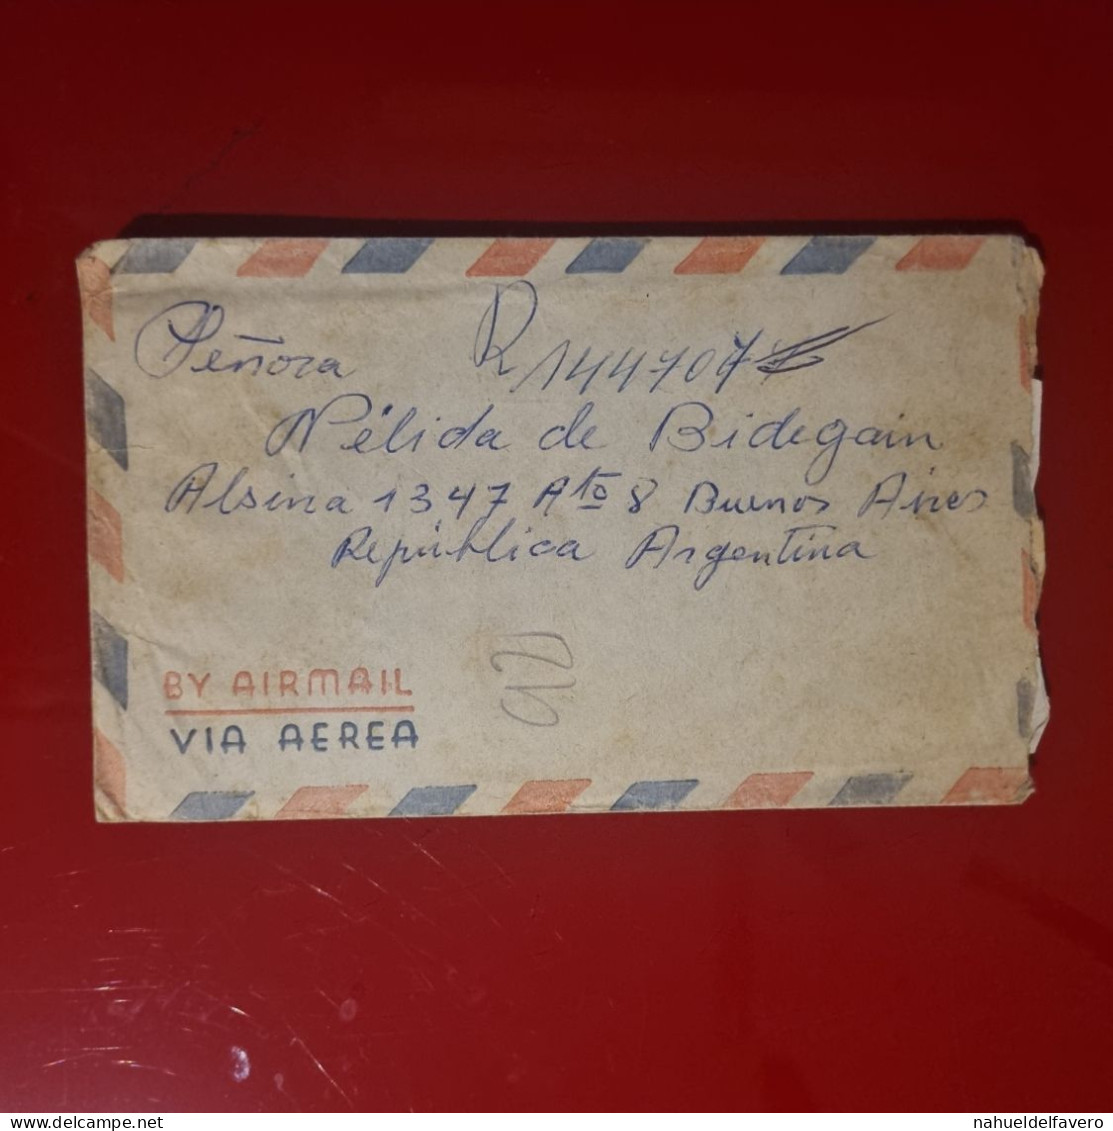 Señora R 144707
Nélida de Bidegain
Alsina 1347 Ato 8 Buenos Aires
República Argentina
BY AIRMAIL
VIA AEREA
delcampe.net
nahueldelfavero